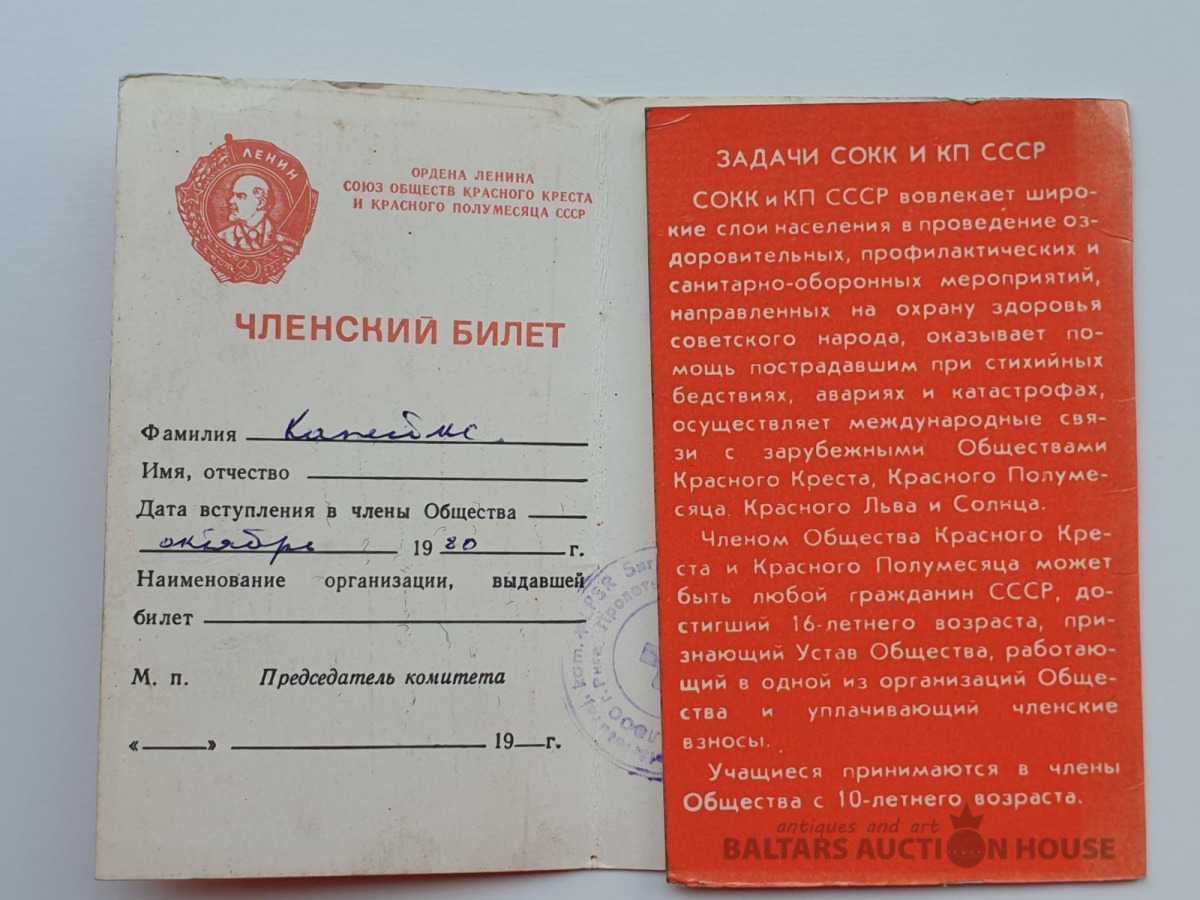 ЛЕНИН
ОРДЕНА ЛЕНИНА
СОЮЗ ОБЩЕСТВ КРАСНОГО КРЕСТА
И КРАСНОГО ПОЛУМЕСЯЦА СССР
ЧЛЕНСКИЙ БИЛЕТ
Фамилия
Имя, отчество
Дата вступления в члены Общества
октябрь 19 80 г.
Наименование организации, выдавшей
билет
М. п. Председатель комитета
« » 19 г.
ЗАДАЧИ СОКК И КП СССР
СОКК и КП СССР вовлекает широ-
кие слои населения в проведение оз-
доровительных, профилактических и
санитарно-оборонных мероприятий,
направленных на охрану здоровья
советского народа, оказывает по-
мощь пострадавшим при стихийных
бедствиях, авариях и катастрофах,
осуществляет международные свя-
зи с зарубежными Обществами
Красного Креста, Красного Полуме-
сяца. Красного Льва и Солнца.
Членом Общества Красного Кре-
ста и Красного Полумесяца может
быть любой гражданин СССР, до-
стигший 16-летнего возраста, при-
знающий Устав Общества, работаю-
щий в одной из организаций Обще-
ства и уплачивающий членские
взносы.
Учащиеся принимаются в члены
Общества с 10-летнего возраста.
antiques and art
BALTARS AUCTION HOUSE